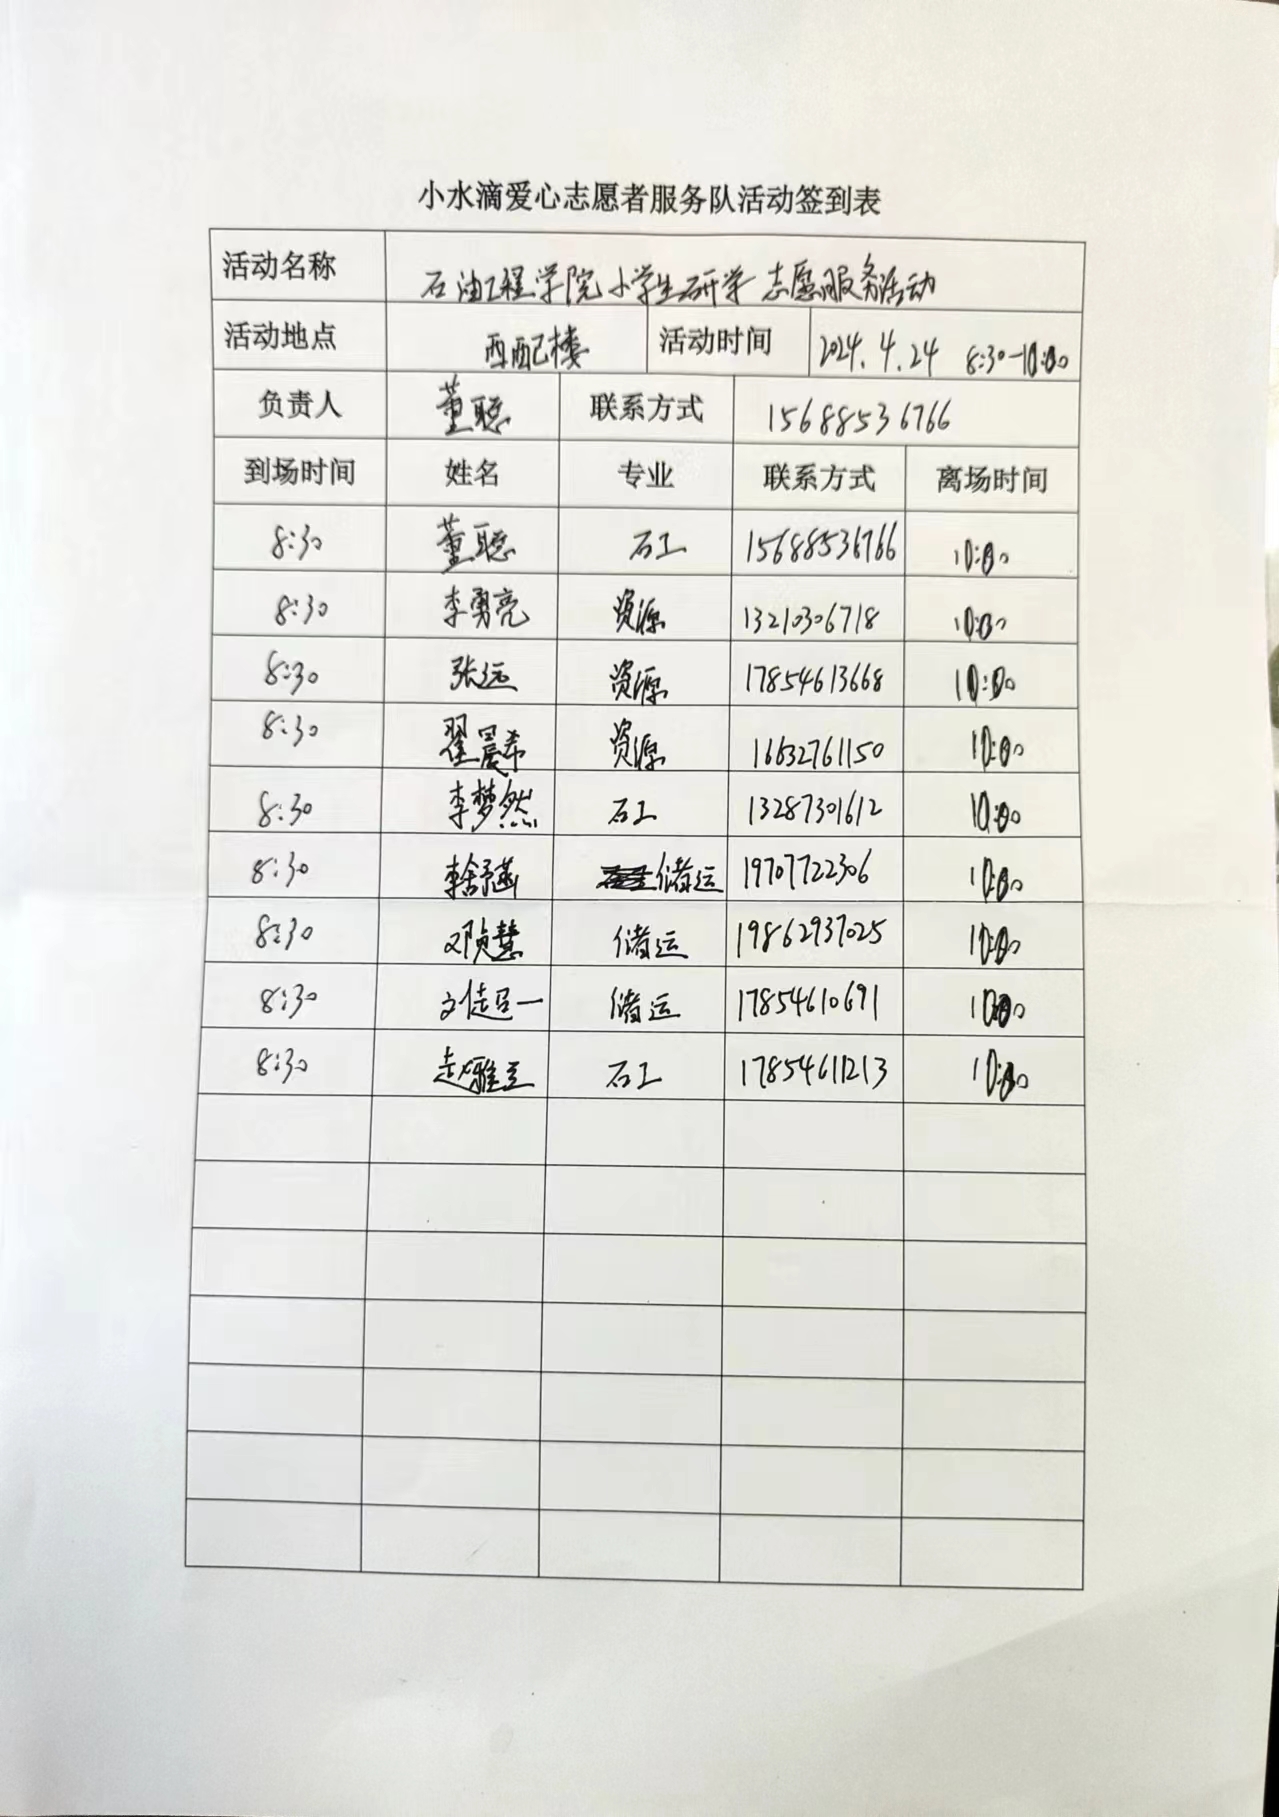 小水滴爱心志愿者服务队活动签到表
活动名称 石油工程学院小学生研学志愿服务活动
活动地点 西配楼 活动时间 2024.4.24 8:30-10:00
负责人 董聪 联系方式 15688536766
到场时间 姓名 专业 联系方式 离场时间
8:30 董聪 石工 15688536766 10:00
8:30 李勇亮 资源 13210306718 10:00
8:30 张远 资源 17854613668 10:00
8:30 翟晨希 资源 16632761150 10:00
8:30 李梦然 石工 13287301612 10:00
8:30 储运 19707722306 10:00
8:30 邓贞慧 储运 19862937025 10:00
8:30 储运 17854610691 10:00
8:30 石工 17854611213 10:00